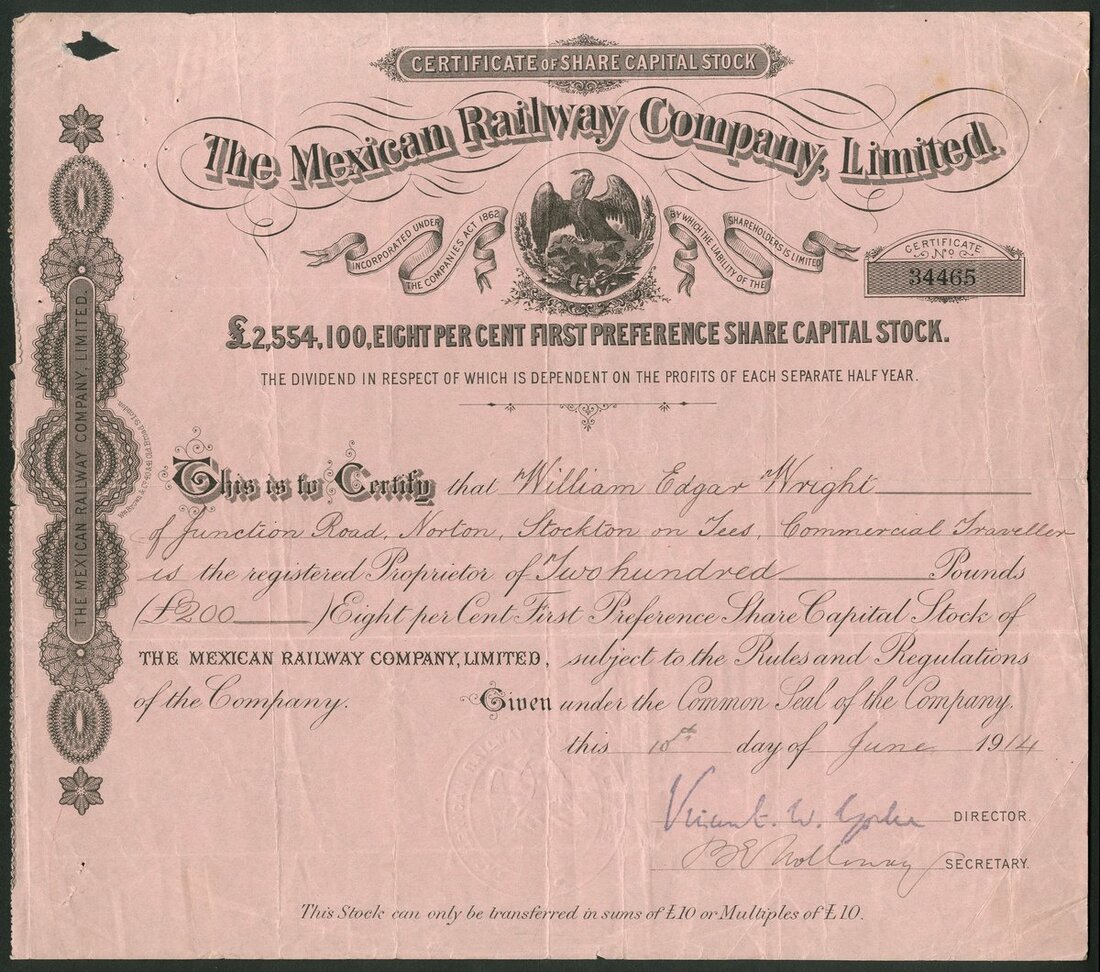 CERTIFICATE OF SHARE CAPITAL STOCK
The Mexican Railway Company, Limited.
INCORPORATED UNDER
THE COMPANIES ACT 1862
BY WHICH THE LIABILITY OF THE
SHAREHOLDERS IS LIMITED
CERTIFICATE
No.
34465
£2,554,100, EIGHT PER CENT FIRST PREFERENCE SHARE CAPITAL STOCK.
THE DIVIDEND IN RESPECT OF WHICH IS DEPENDENT ON THE PROFITS OF EACH SEPARATE HALF YEAR.
THE MEXICAN RAILWAY COMPANY, LIMITED.
This is to Certify that William Edgar Wright
of Junction Road, Norton, Stockton on Tees, Commercial Traveller
is the registered Proprietor of Two hundred Pounds
(£200 ) Eight per Cent First Preference Share Capital Stock of
THE MEXICAN RAILWAY COMPANY, LIMITED, subject to the Rules and Regulations
of the Company. Given under the Common Seal of the Company,
this 10th day of June 1914
W. DIRECTOR.
Holloway SECRETARY.
This Stock can only be transferred in sums of £10 or Multiples of £10.